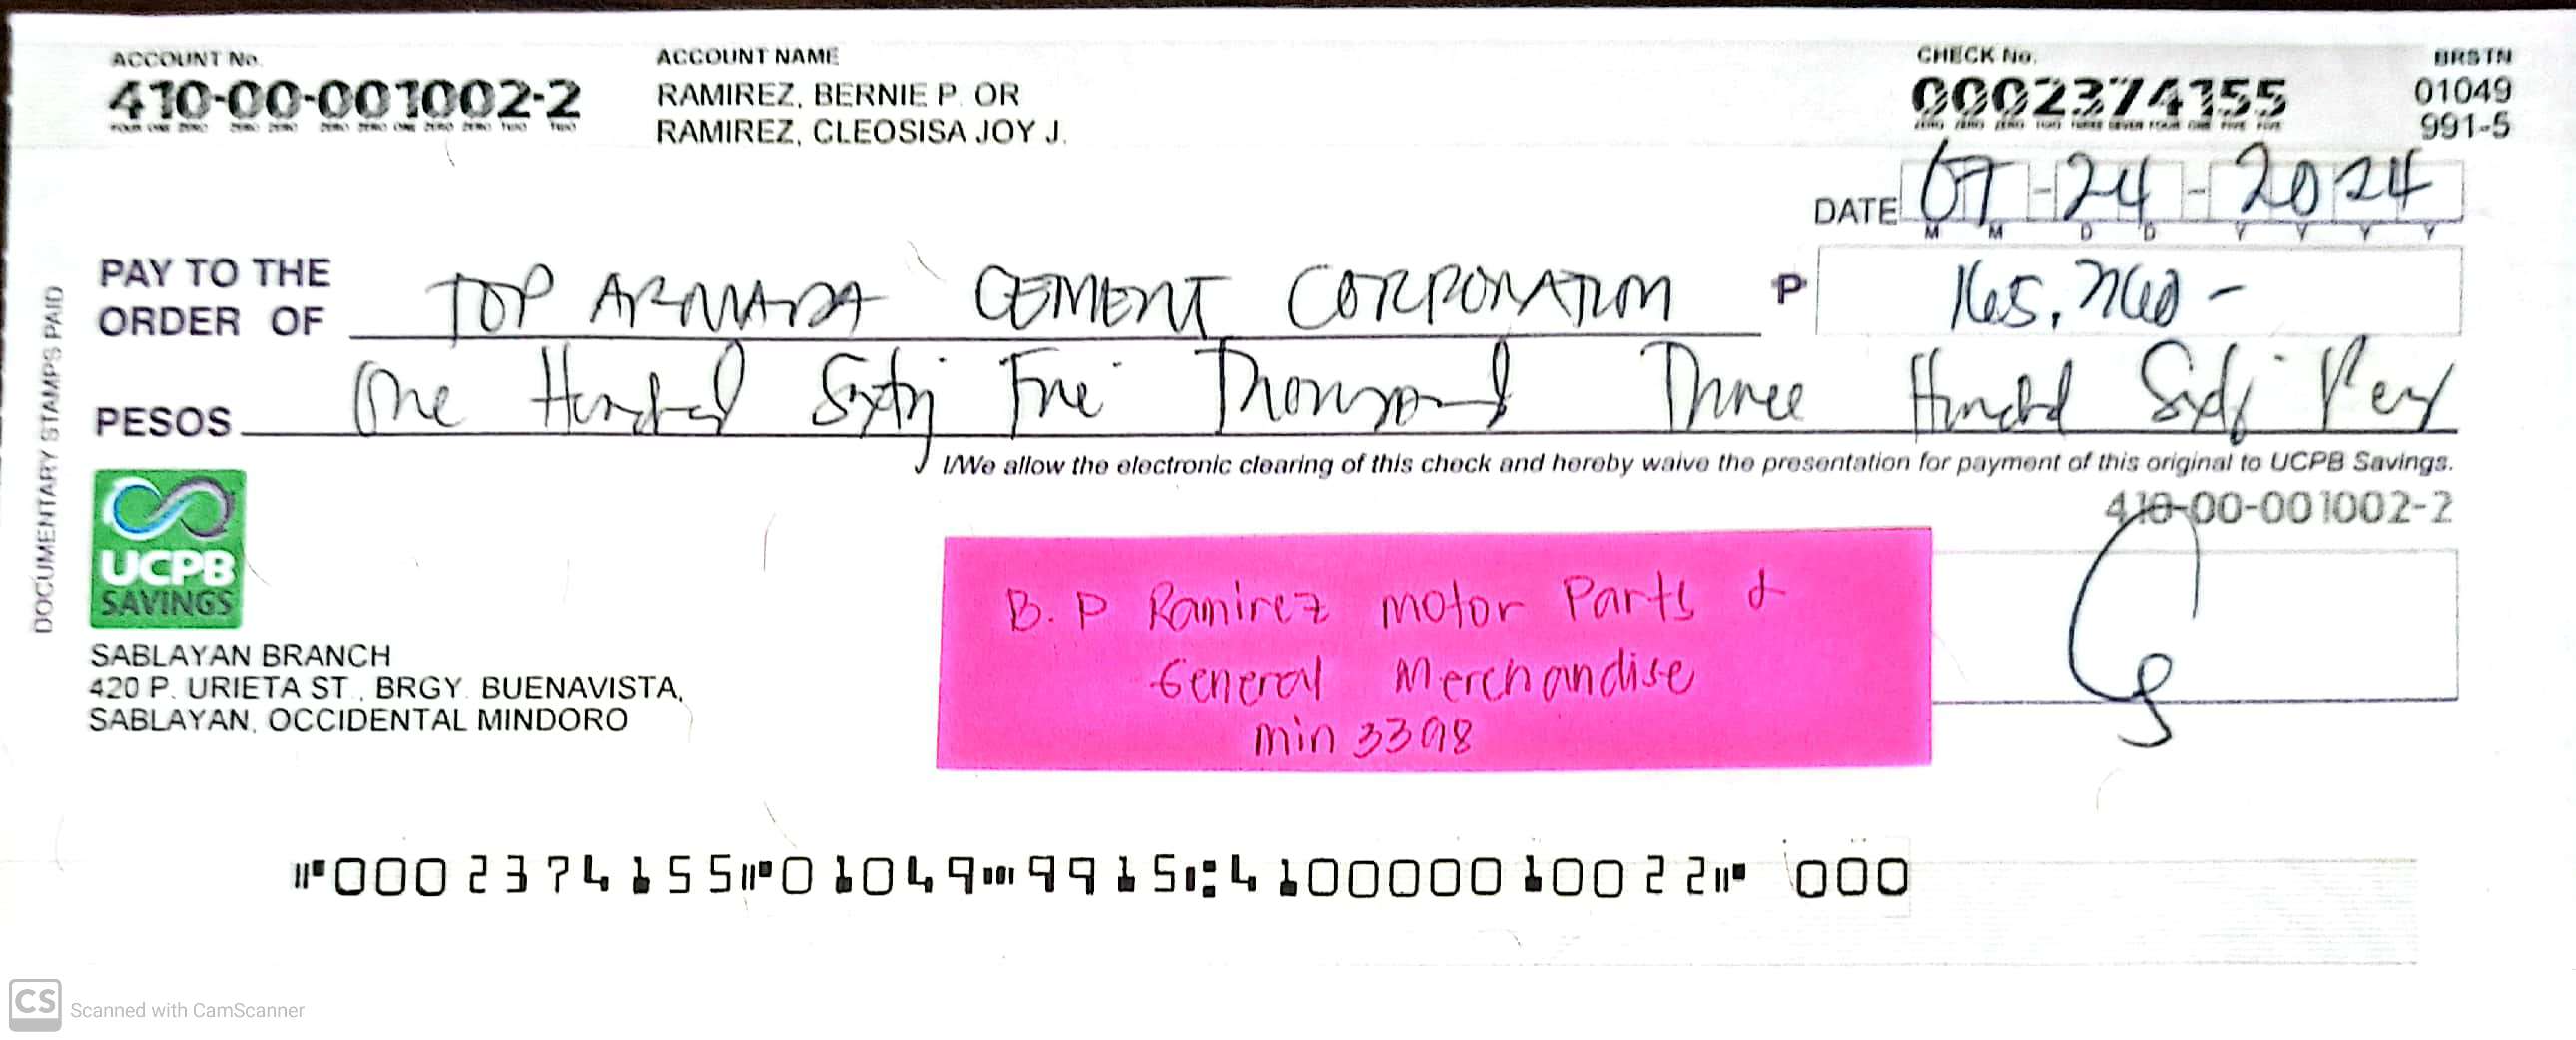 ACCOUNT No.
410-00-001002-2
FOUR ONE ZERO ZERO ZERO ZERO ZERO ONE ZERO ZERO TWO TWO
ACCOUNT NAME
RAMIREZ, BERNIE P. OR
RAMIREZ, CLEOSISA JOY J.
CHECK No.
0002374155
ZERO ZERO ZERO TWO THREE SEVEN FOUR ONE FIVE FIVE
BRSTN
01049
991-5
DATE 07-24-2024
M M D D Y Y Y Y
PAY TO THE
ORDER OF TOP ARMADA CEMENT CORPORATION P 165,360 -
PESOS One Hundred Sixty Five Thousand Three Hundred Sixty
I/We allow the electronic clearing of this check and hereby waive the presentation for payment of this original to UCPB Savings.
DOCUMENTARY STAMPS PAID
UCPB
SAVINGS
SABLAYAN BRANCH
420 P. URIETA ST., BRGY. BUENAVISTA,
SABLAYAN, OCCIDENTAL MINDORO
410-00-001002-2
B. P Ramirez motor Parts &
General Merchandise
min 3398
⑈0002374155⑈01049⑉9915⑆410000010022⑈ 000
CS Scanned with CamScanner